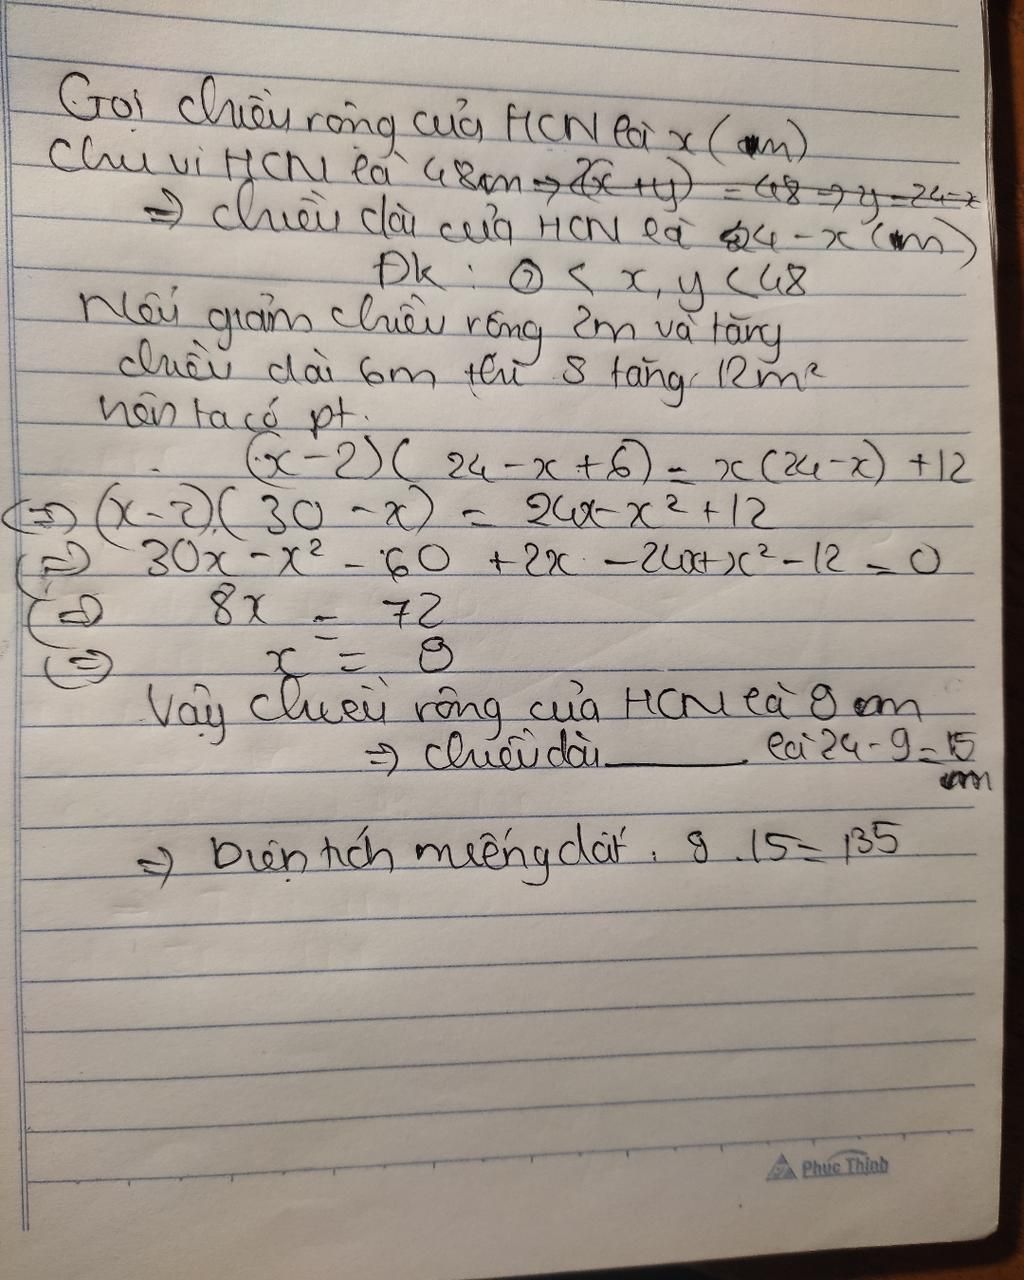 Gọi chiều rộng của HCN là x (m)
Chu vi HCN là 48m => 2(x+y) = 48 => y = 24-x
=> chiều dài của HCN là 24 - x (m)
Đk : 0 < x, y < 48
Nếu giảm chiều rộng 2m và tăng
chiều dài 6m thì S tăng 12m²
nên ta có pt.
(x-2)( 24 - x + 6) = x(24-x) + 12
<=> (x-2)( 30 - x) = 24x - x² + 12
<=> 30x - x² - 60 + 2x - 24x + x² - 12 = 0
<=> 8x = 72
<=> x = 9
Vậy chiều rộng của HCN là 9 m
=> chiều dài ______ là 24 - 9 = 15
m
=> Diện tích miếng đất : 9 . 15 = 135
Phuc Thinh